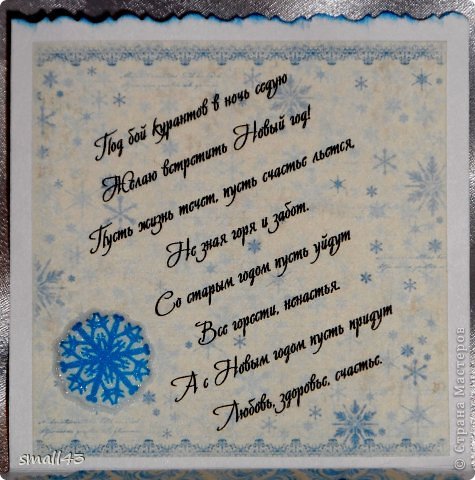 Под бой курантов в ночь седую
Желаю встретить Новый год!
Пусть жизнь течет, пусть счастье льется,
Не зная горя и забот.
Со старым годом пусть уйдут
Все горести, ненастья.
А с Новым годом пусть придут
Любовь, здоровье, счастье.
small43
© Страна Мастеров